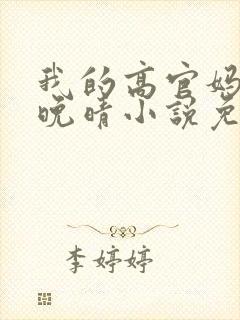 我的高官妈
晚晴小说免
李婷婷